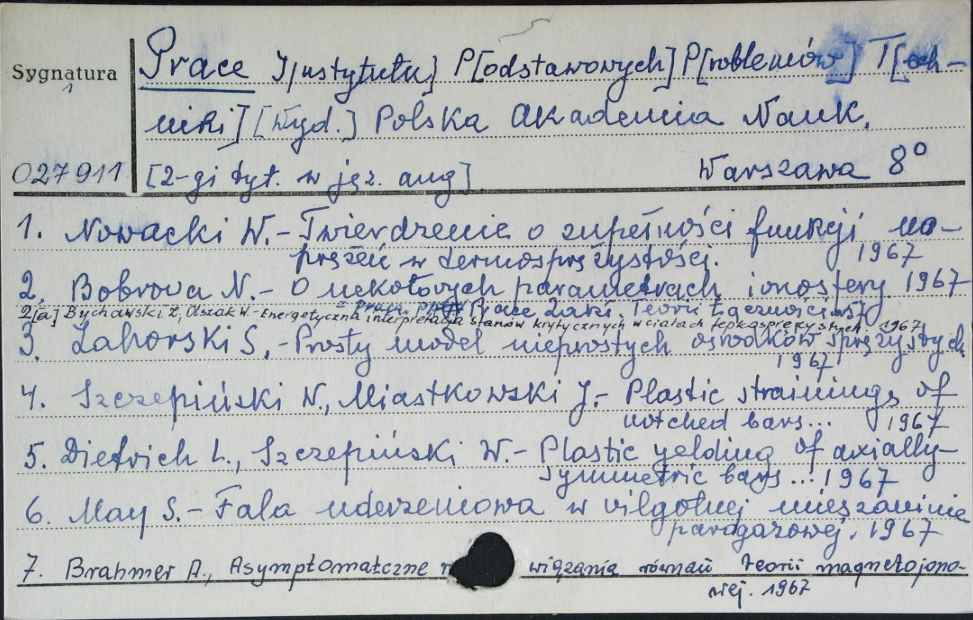 Prace I[nstytutu] P[odstawowych] P[roblemów] T[ech-
Sygnatura
niki] [Wyd.] Polska Akademia Nauk.
027911 [2-gi tyt. w jęz. ang] Warszawa 8°
1. Nowacki W. - Twierdzenie o zupełności funkcji na-
prężeń w termosprężystości. 1967
2. Bobrova N. - O niektórych parametrach jonosfery 1967
= Prace Zakł. Teorii Łączności
2[a] Bychawski Z., Olszak W. - Energetyczna interpretacja stanów krytycznych w ciałach lepkosprężystych. 1967
3. Zahorski S. - Prosty model nieprostych ośrodków sprężystych
1967
4. Szczepiński W., Miastkowski J. - Plastic strainings of
notched bars... 1967
5. Dietrich L., Szczepiński W. - Plastic yelding of axially-
symmetric bars... 1967
6. May S. - Fala uderzeniowa w wilgotnej mieszaninie
parogazowej. 1967
7. Brahmer A., Asymptomatczne wiązania równań teorii magnetojono-
wej. 1967